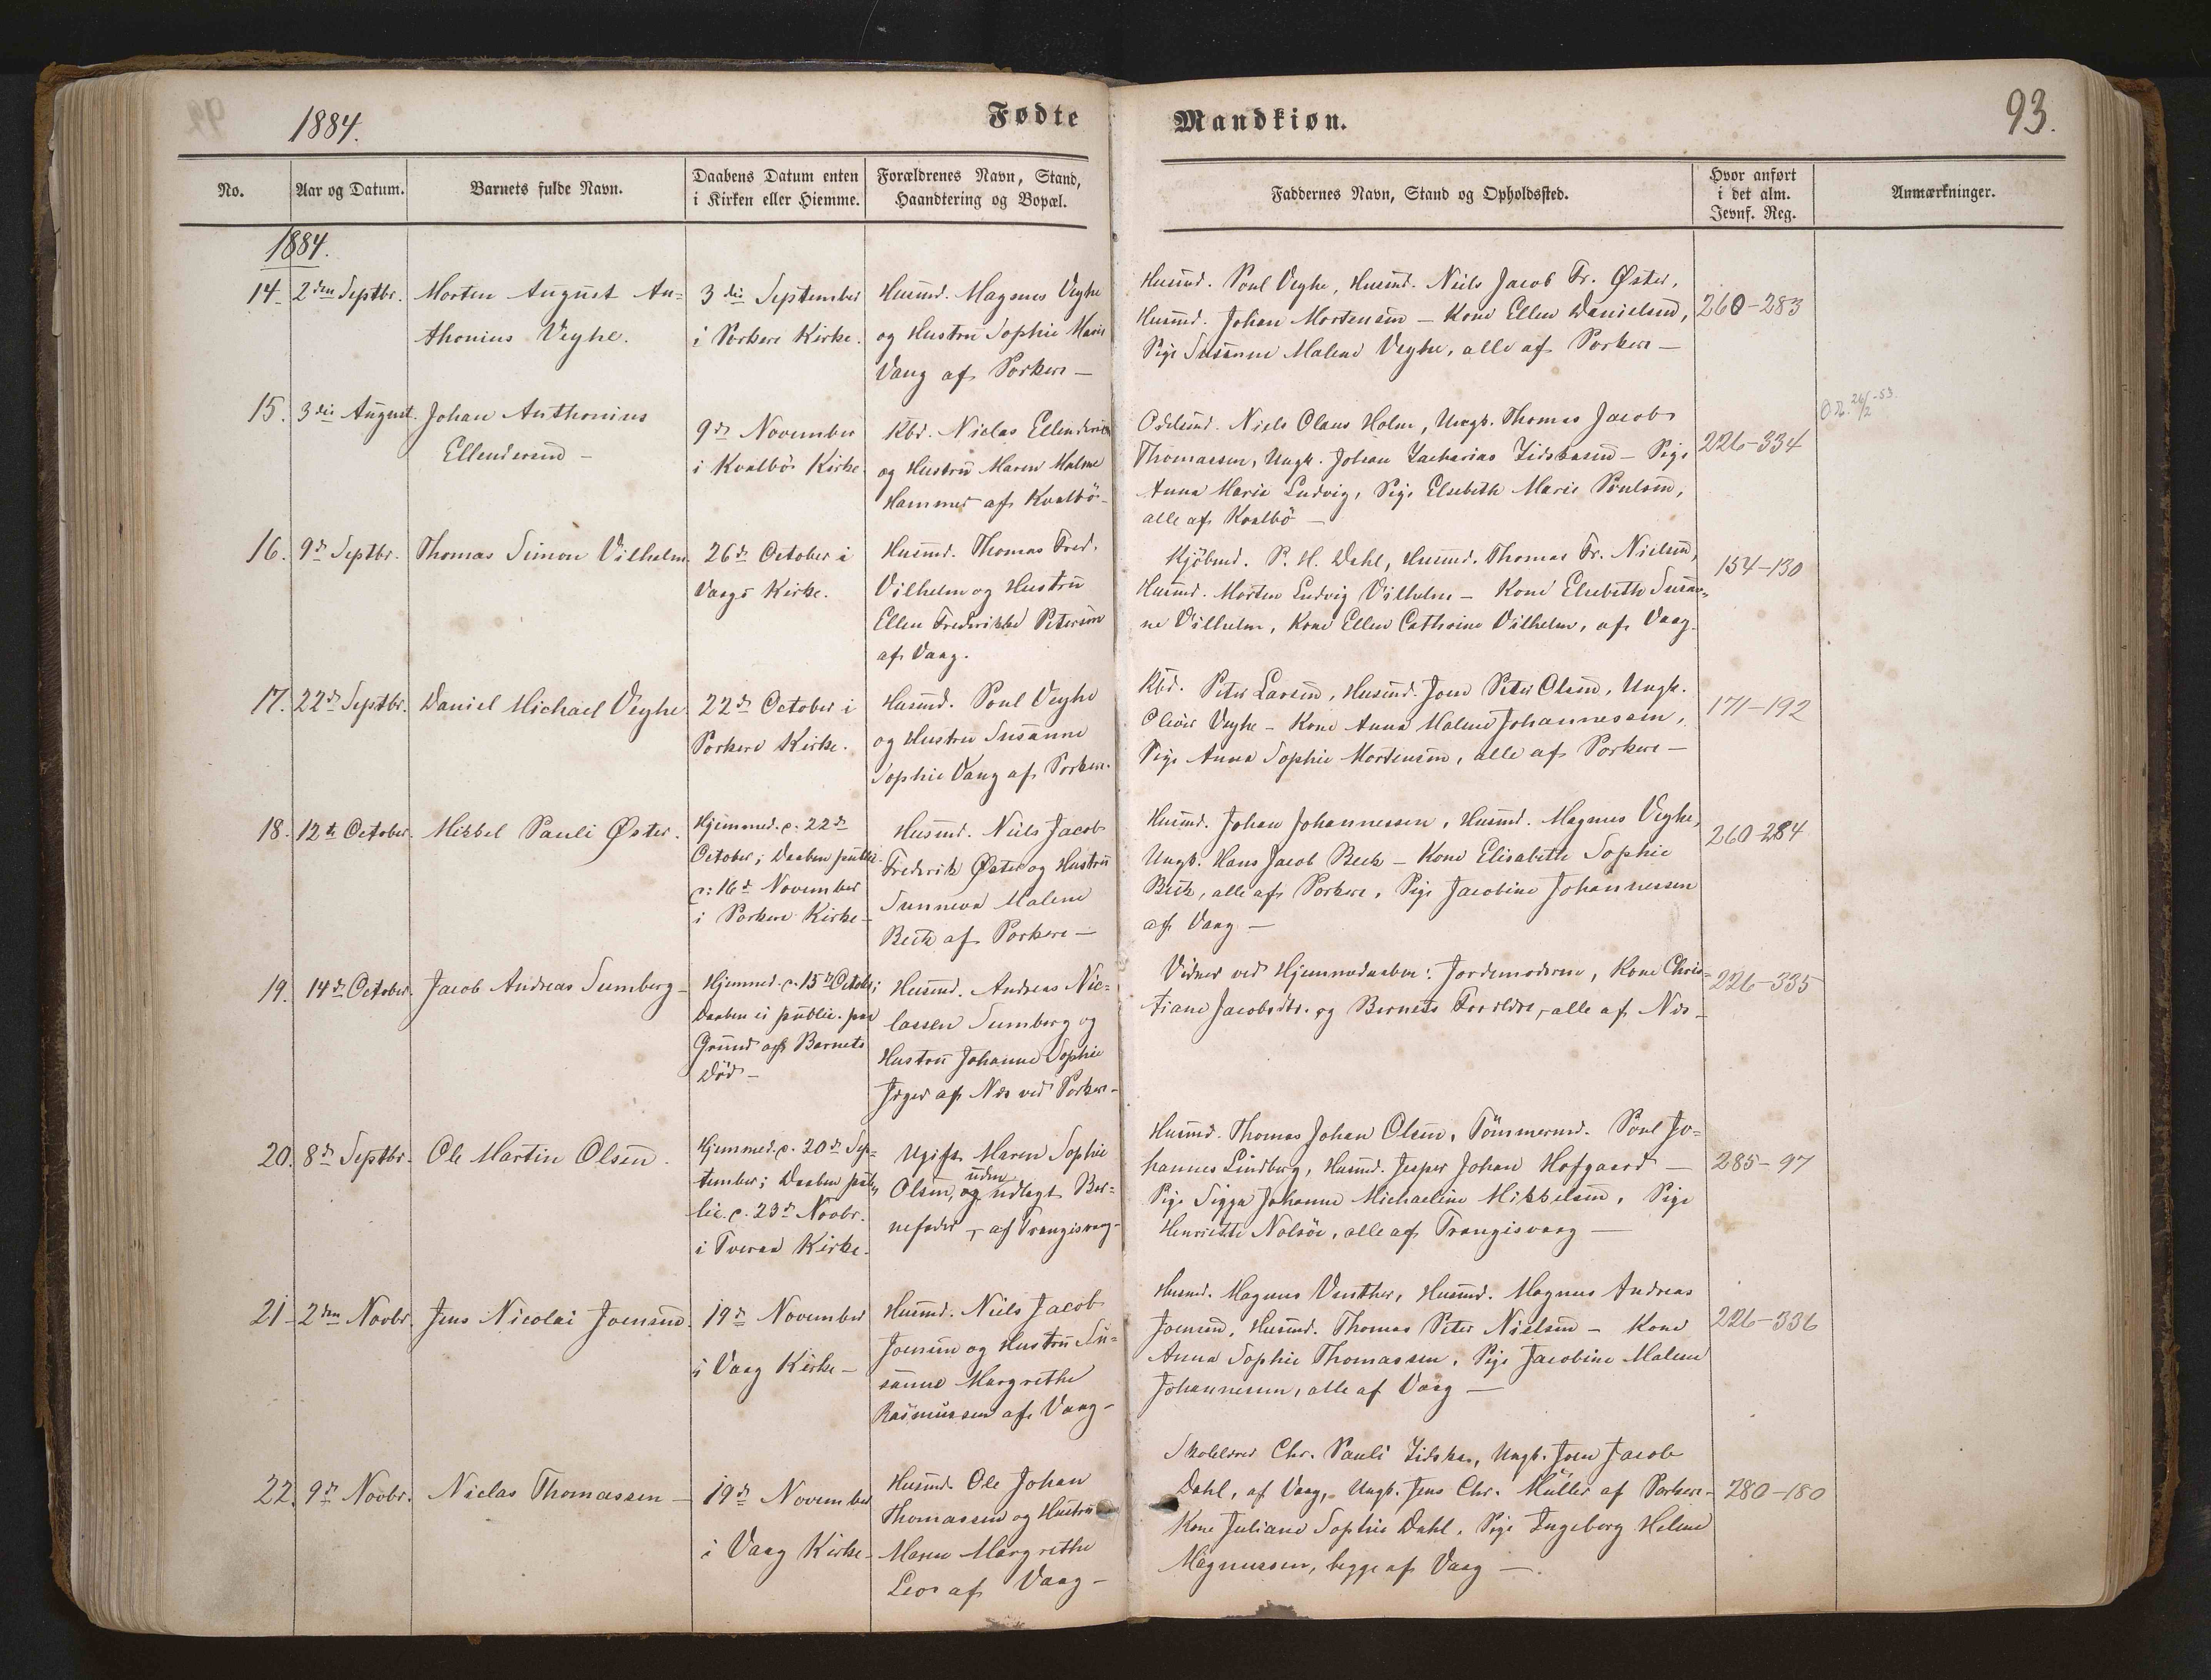 1884.
Fødte
Mandkiøn.
93.
No.
Aar og Datum.
Barnets fulde Navn.
Daabens Datum enten
i Kirken eller Hiemme.
Forældrenes Navn, Stand,
Haandtering og Bopæl.
Faddernes Navn, Stand og Opholdssted.
Hvor anført
i det alm.
Jevnf. Reg.
Anmærkninger.
1884.
14. 2den Septbr.
Morten August An=
thonius Veyhe.
3die September
i Porkere Kirke.
Husmd. Magnus Veyhe
og Hustru Sophie Marie
Vang af Porkere —
Husmd. Poul Veyhe, Husmd. Niels Jacob Fr. Øster,
Husmd. Johan Mortensen — Kone Ellen Danielsen,
Pige Susanne Malene Veyhe, alle af Porkere —
260-283
15. 3die August.
Johan Anthonius
Ellendersen —
9de November
i Kvalbö Kirke.
Kbd. Niclas Ellendersen
og Hustru Maren Malene
Hammer af Kvalbö —
Odelsmd. Niels Claus Holm, Ungk. Thomas Jacob
Thomassen, Ungk. Johan Zacharias Zidskasen — Pige
Anna Marie Ludvig, Pige Elsebeth Marie Poulsen,
alle af Kvalbö —
226-334
26/2-53.
16. 9de Septbr.
Thomas Simon Vilhelm.
26de October i
Vaags Kirke.
Husmd. Thomas Fred.
Vilhelm og Hustru
Ellen Frederikke Petersen
af Vaag.
Kjöbmd. P. H. Dahl, Husmd. Thomas Fr. Nielsen,
Husmd. Morten Ludvig Vilhelm — Kone Elsebeth Susan=
ne Vilhelm, Kone Ellen Cathrine Vilhelm, af Vaag.
154-130
17. 22de Septbr.
Daniel Michael Veyhe.
22de October i
Porkere Kirke.
Husmd. Poul Veyhe
og Hustru Susanne
Sophie Vang af Porkere.
Kbd. Peter Larsen, Husmd. Joen Peter Olsen, Ungk.
Oliver Veyhe — Kone Anna Malene Johannessen,
Pige Anna Sophie Mortensen, alle af Porkere —
171-192
18. 12te October.
Mikkel Pauli Øster.
Hjemmed. d. 22de
October; Daaben public.
d. 16de November
i Porkere Kirke —
Husmd. Niels Jacob
Frederik Øster og Hustru
Sunneva Malene
Beck af Porkere —
Husmd. Johan Johannessen, Husmd. Magnus Veyhe,
Ungk. Hans Jacob Beck — Kone Elisabeth Sophie
Beck, alle af Porkere, Pige Jacobine Johannessen
af Vaag —
260-284
19. 14de October.
Jacob Andreas Sumberg —
Hjemmed. d. 15de Octobr;
Daaben ei public. paa
Grund af Barnets
Död —
Husmd. Andreas Nic=
lassen Sumberg og
Hustru Johanne Sophie
af Næs ved Porkere —
Vidner ved Hjemmedaaben: Jordemoderen, Kone Chris=
tiane Jacobsdtr. og Barnets Forældre, alle af Næs —
226-335
20. 8de Septbr.
Ole Martin Olsen.
Hjemmed. d. 20de Sep=
tember; Daaben pub=
lic. d. 23de Novbr.
i Tveraa Kirke.
Ugift Maren Sophie
Olsen, og uden udlagt Bar=
nefader, — af Trangisvaag —
Husmd. Thomas Johan Olsen, Tömmermd. Poul Jo=
hannes Lindberg, Husmd. Jesper Johan Hofgaard —
Pige Sigga Johanne Michaeline Mikkelsen, Pige
Henriette Nolsöe, alle af Trangisvaag —
285-97
21. 2den Novbr.
Jens Nicolai Joensen.
19de November
i Vaag Kirke —
Husmd. Niels Jacob
Joensen og Hustru Su=
sanne Margrethe
Rasmussen af Vaag —
Husmd. Magnus Venther, Husmd. Magnus Andreas
Joensen, Husmd. Thomas Peter Nielsen — Kone
Anna Sophie Thomassen, Pige Jacobine Malene
Johannessen, alle af Vaag —
226-336
22. 9de Novbr.
Niclas Thomassen —
19de November
i Vaag Kirke —
Husmd. Ole Johan
Thomassen og Hustru
Maren Margrethe
Leos af Vaag —
Skolelærer Chr. Pauli Zidska, Ungk. Joen Jacob
Dahl, af Vaag, Ungk. Jens Chr. Müller af Porkere —
Kone Juliane Sophie Dahl, Pige Ingeborg Helene
Magnussen, begge af Vaag —.
280-180